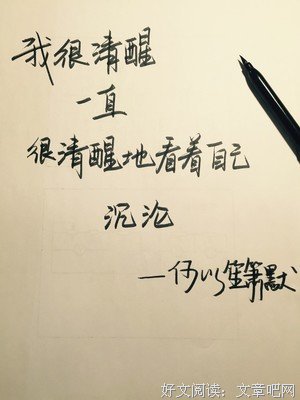 我很清醒
一直
很清醒地看着自己
沉沦
—何以笙箫默
好文阅读：文章吧网